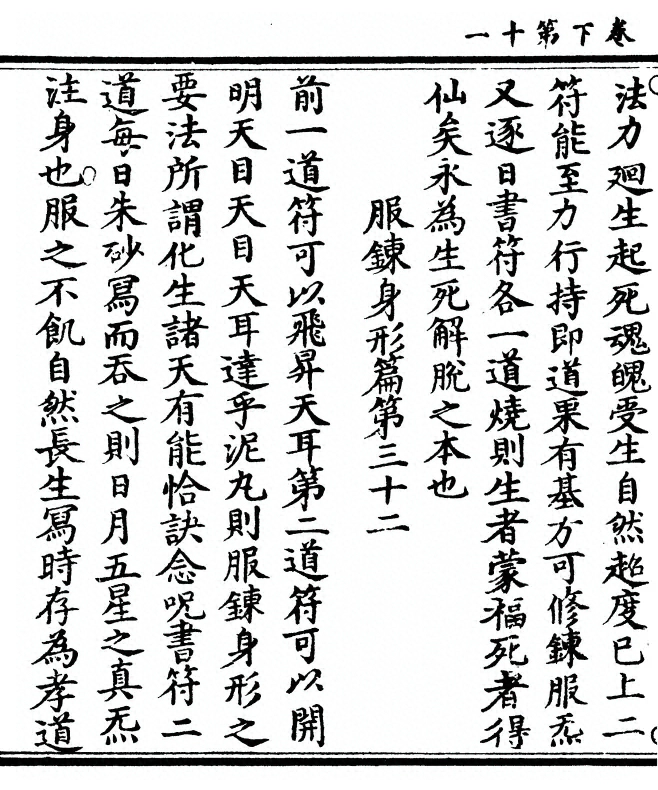 卷下第十一
法力廻生起死魂魄受生自然超度已上二
符能至力行持即道果有基方可修鍊服炁
又逐日書符各一道燒則生者蒙福死者得
仙矣永為生死解脫之本也
服鍊身形篇第三十二
前一道符可以飛昇天耳第二道符可以開
明天目天目天耳達乎泥丸則服鍊身形之
要法所謂化生諸天有能恰訣念呪書符二
道每日朱砂冩而吞之則日月五星之真炁
注身也服之不飢自然長生冩時存為孝道